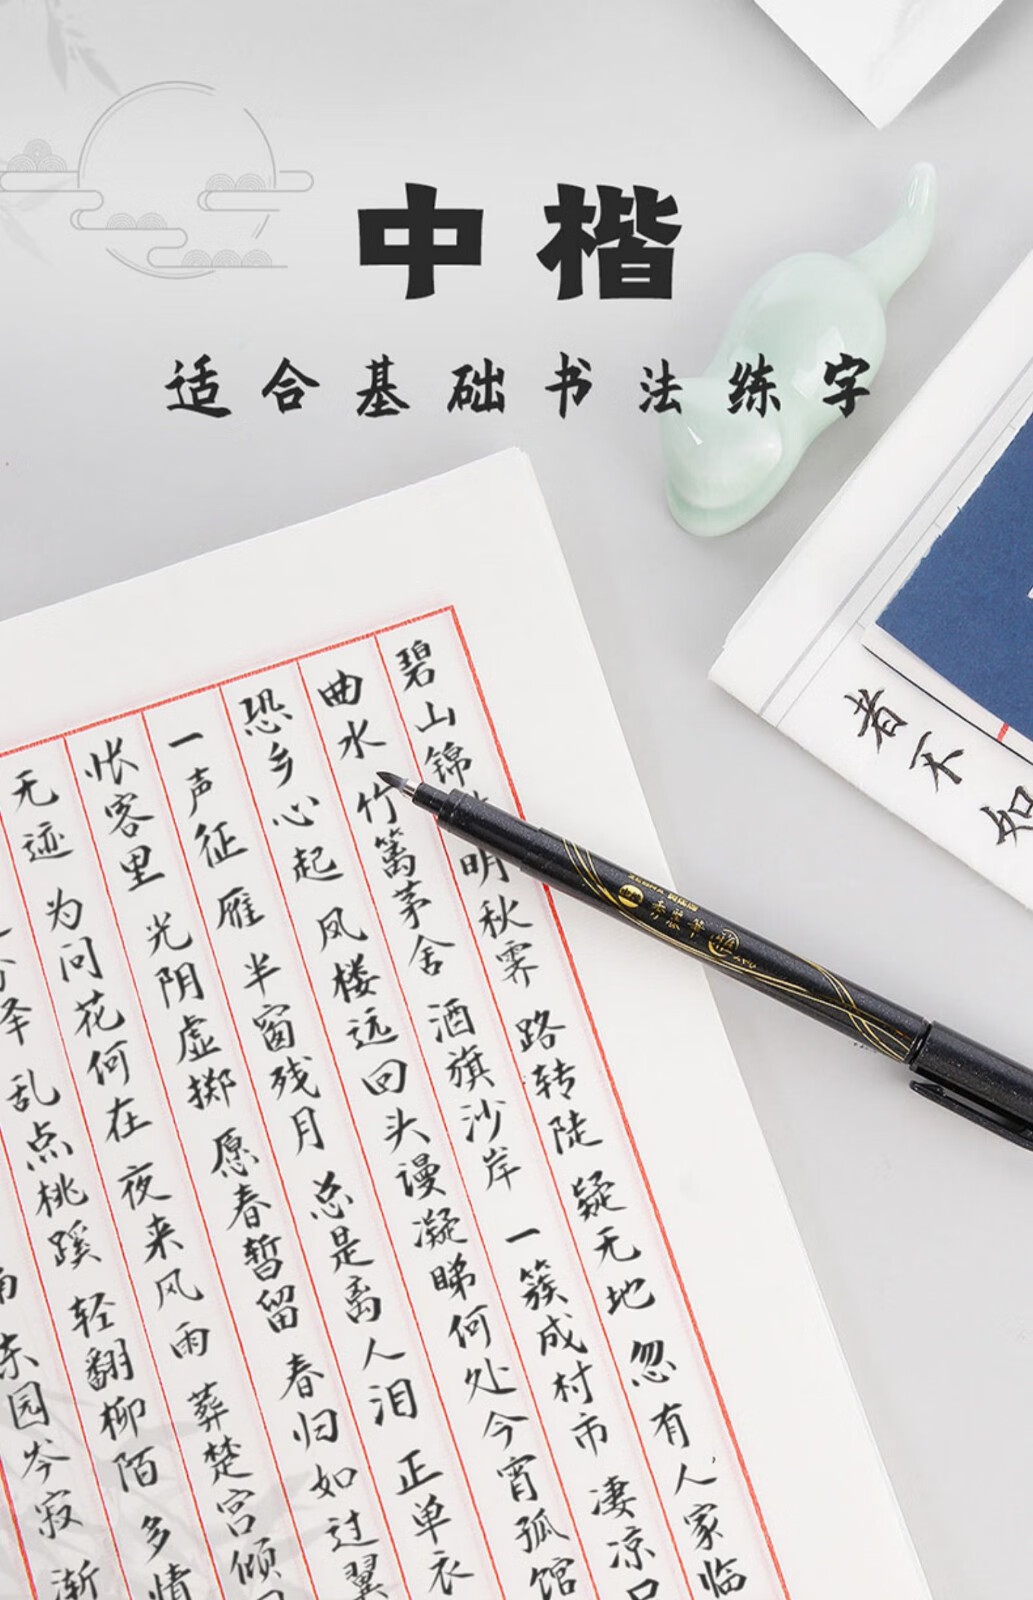 中楷
适合基础书法练字
碧山锦明秋霁 路转陡 疑无地 忽有人家临
曲水 竹篱茅舍 酒旗沙岸 一簇成村市 凄凉
恐乡心起 凤楼远回头谩凝睇何处今宵孤馆
一声征雁 半窗残月 总是离人泪 正单衣
怅客里 光阴虚掷 愿春暂留 春归如过翼
无迹 为问花何在 夜来风雨 葬楚宫倾
泽 乱点桃蹊 轻翻柳陌 多情
东园岑寂 渐
秀麗筆
者不知